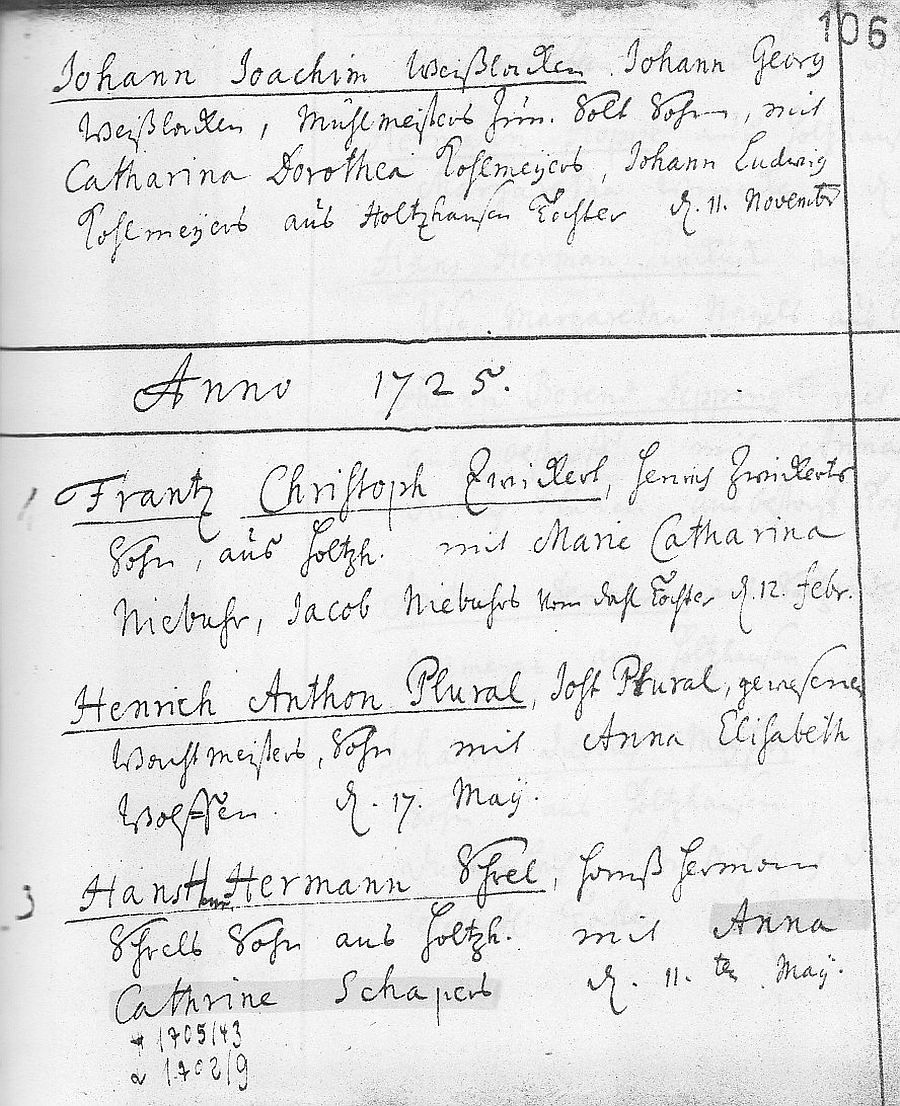 106
Johann Joachim Weißbrodten Johann Georg
Weißbrodten, Mühlmeisters Sohn, mit
Catharina Dorothea Pohlmeyers, Johann Ludwig
Pohlmeyers aus Holtzhausen Tochter d. 11. Novembr
Anno 1725.
Frantz Christoph Zwickert, Henrichs Zwickerts
Sohn, aus Holtzh. mit Marie Catharina
Niebuhr, Jacob Niebuhrs vom dahl Tochter d. 12. Febr.
Henrich Anthon Plural, Jost Plural, gewesenen
Wachtmeisters, Sohn mit Anna Elisabeth
Wolffen. d. 17. Maÿ.
3
Hans Hermann Schrel, Hanß Herman
Schrels Sohn aus Holtzh. mit Anna
Cathrine Schapers d. 11. ten Maÿ.
1705/43
1702/9